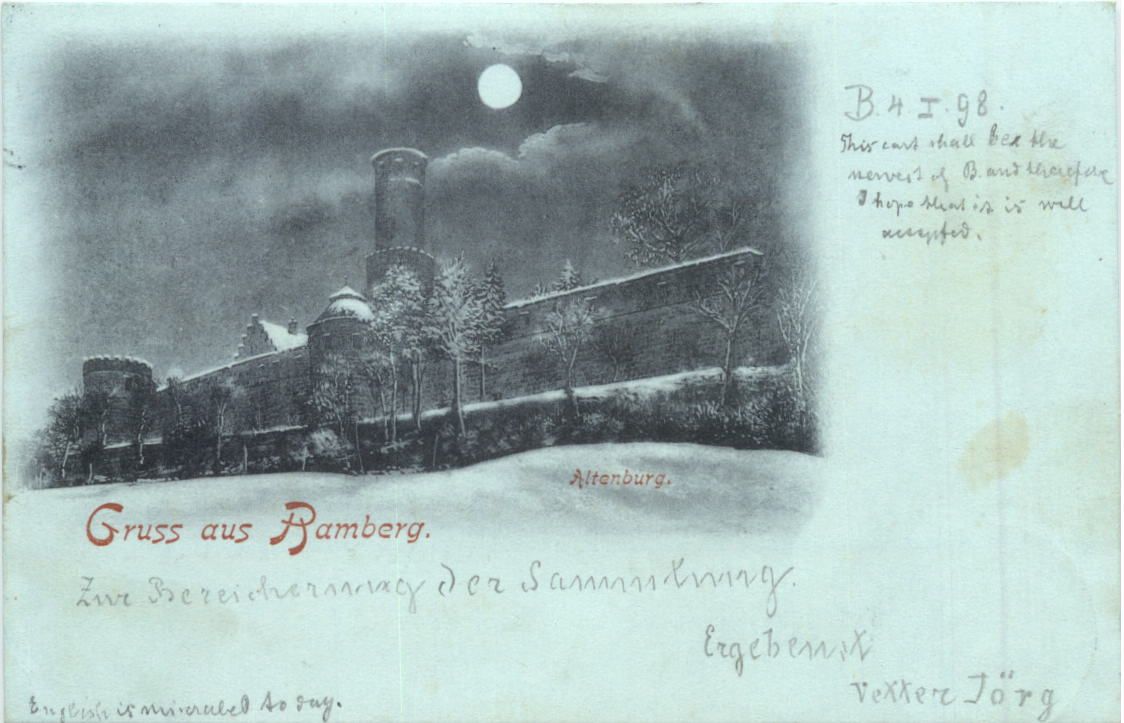 B. 4 I. 98.
This cart shall bee the
newest of B. and therefore
I hope that it is will
accepted.
Altenburg.
Gruss aus Bamberg.
Zur Bereicherung der Sammlung.
Ergebenst
Vetter Jörg
English is miserabel to day.